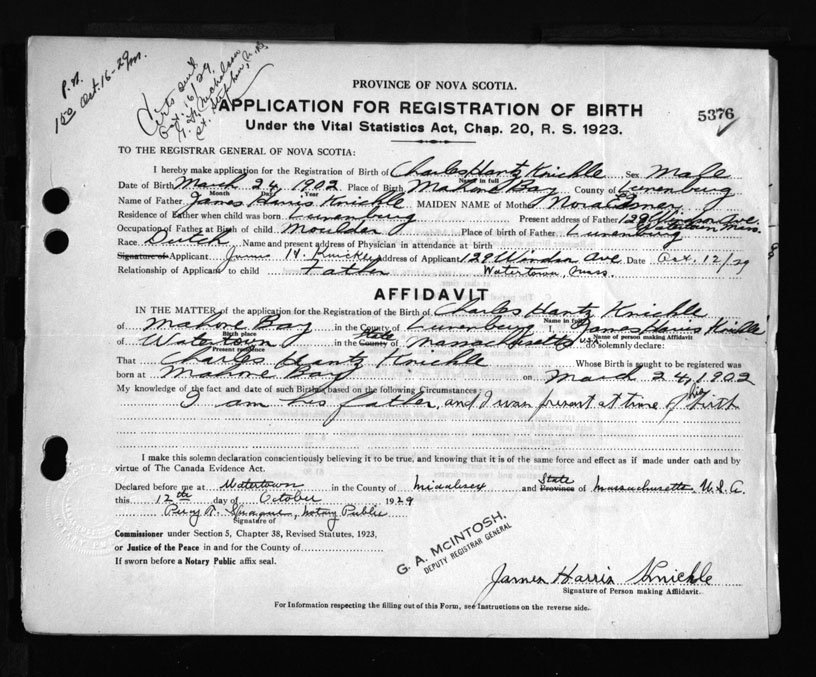 P.N.
150 Oct. 16-29 m.
Certs sent
Oct. 16/29.
PROVINCE OF NOVA SCOTIA.
APPLICATION FOR REGISTRATION OF BIRTH
5376
Under the Vital Statistics Act, Chap. 20, R. S. 1923.
TO THE REGISTRAR GENERAL OF NOVA SCOTIA:
I hereby make application for the Registration of Birth of Charles Hantz Knickle Sex Male
Name in full
Date of Birth March 24, 1902 Place of Birth Mahone Bay County of Lunenburg
Month Day Year
Name of Father James Harris Knickle MAIDEN NAME of Mother Nora
Residence of Father when child was born Lunenburg Present address of Father 129 Windsor Ave. Watertown Mass.
Occupation of Father at Birth of child Moulder Place of birth of Father Lunenburg
Race Dutch Name and present address of Physician in attendance at birth
Signature of Applicant James H. Knickle Address of Applicant 129 Windsor Ave. Date Oct. 12/29
Relationship of Applicant to child Father Watertown, Mass.
AFFIDAVIT
IN THE MATTER of the application for the Registration of the Birth of Charles Hantz Knickle
Name in full
of Mahone Bay in the County of Lunenburg I, James Harris Knickle
Birth place Name of person making Affidavit
of Watertown in the County State of Massachusetts U.S. do solemnly declare:
Present residence
That Charles Hantz Knickle Whose Birth is sought to be registered was
born at Mahone Bay on March 24, 1902
My knowledge of the fact and date of such Birth is based on the following Circumstances
I am his father, and I was present at time of his birth
I make this solemn declaration conscientiously believing it to be true, and knowing that it is of the same force and effect as if made under oath and by
virtue of The Canada Evidence Act.
Declared before me at Watertown in the County of Middlesex and Province State of Massachusetts, U.S.A.
this 12th day of October 1929
Percy Notary Public
Signature of
Commissioner under Section 5, Chapter 38, Revised Statutes, 1923,
or Justice of the Peace in and for the County of
If sworn before a Notary Public affix seal.
G. A. McINTOSH,
DEPUTY REGISTRAR GENERAL
James Harris Knickle
Signature of Person making Affidavit.
For Information respecting the filling out of this Form, see Instructions on the reverse side.